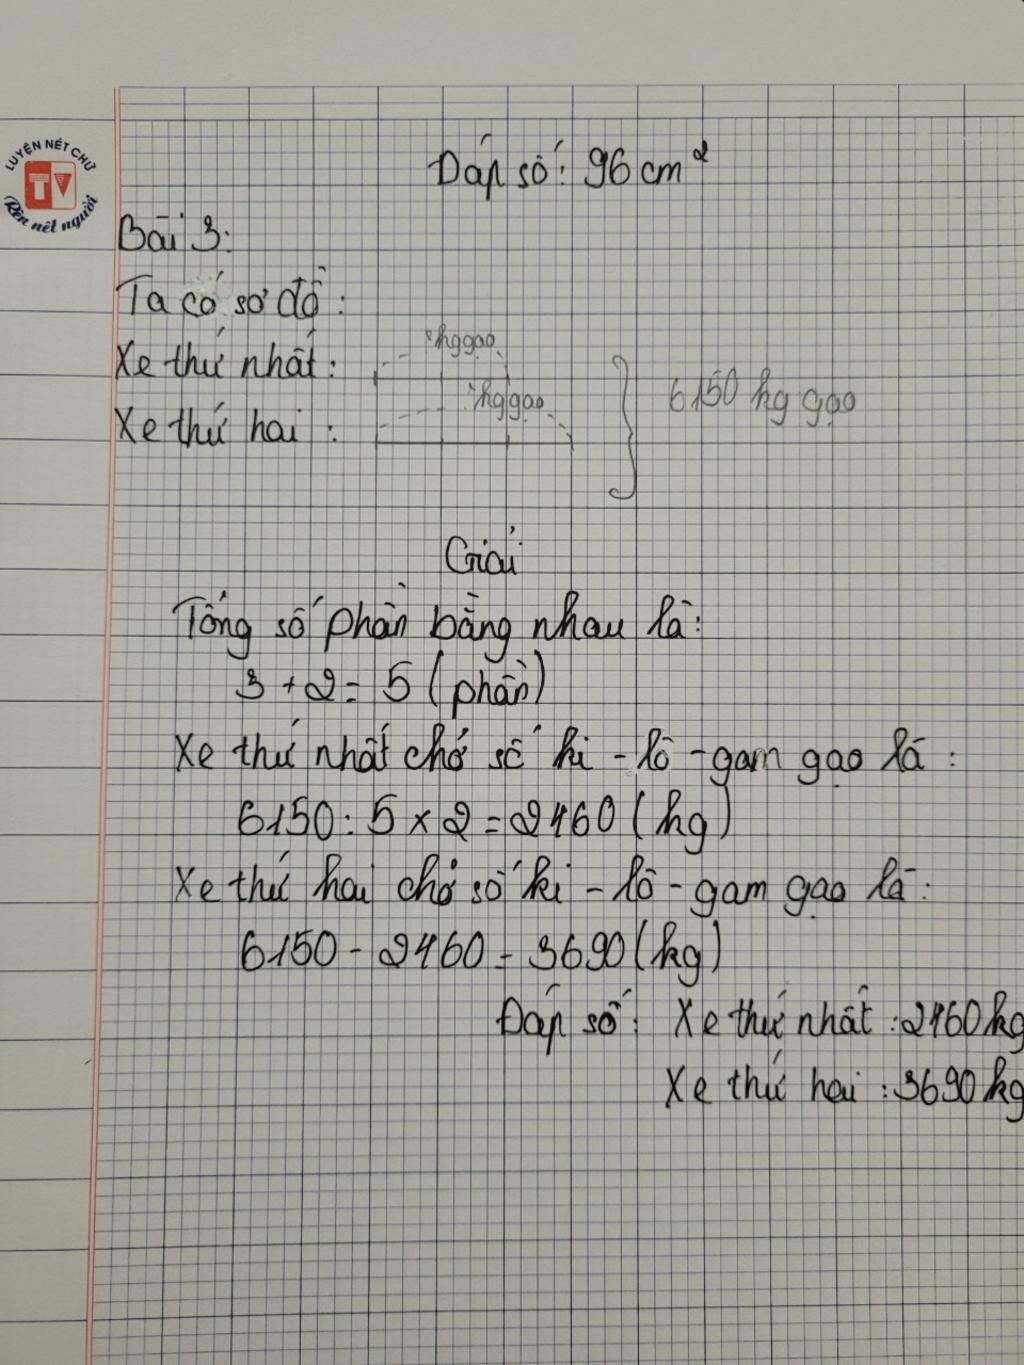 LUYỆN NÉT CHỮ
TV
Rèn nết người
Đáp số: 96 cm²
Bài 3:
Ta có sơ đồ:
Xe thứ nhất: ?kg gạo
Xe thứ hai: ?kg gạo
6150 kg gạo
Giải
Tổng số phần bằng nhau là:
3 + 2 = 5 (phần)
Xe thứ nhất chở số ki-lô-gam gạo là:
6150 : 5 x 2 = 2460 (kg)
Xe thứ hai chở số ki-lô-gam gạo là:
6150 - 2460 = 3690 (kg)
Đáp số: Xe thứ nhất: 2460kg
Xe thứ hai: 3690kg